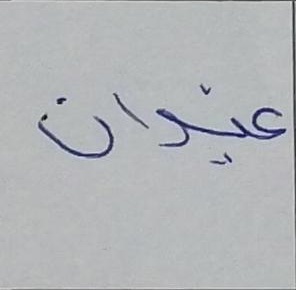 عينوان